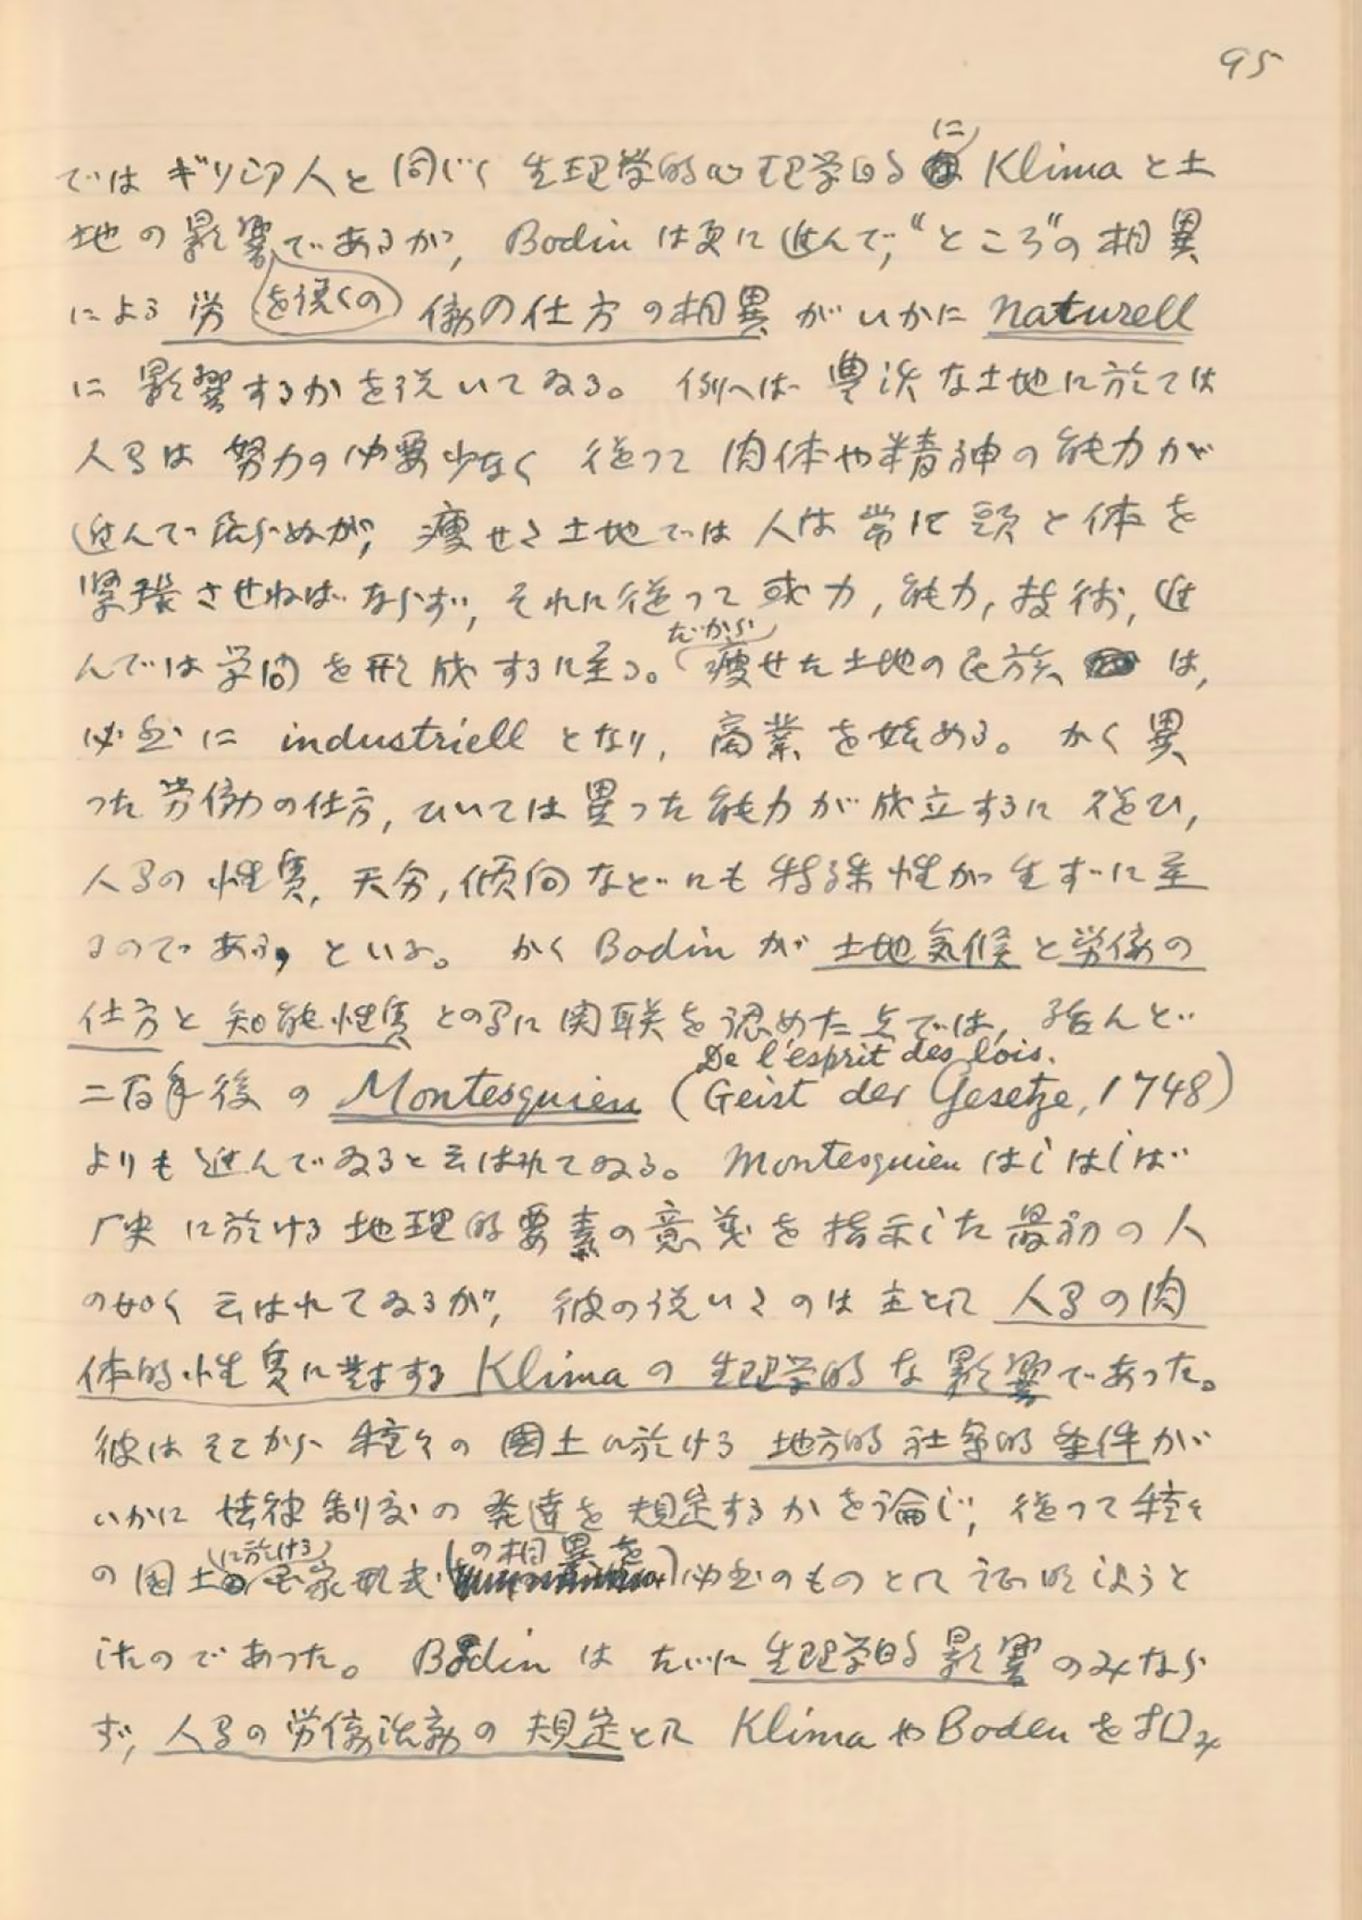 95
ではギリシア人と同じく生理学的心理学的に Klima と土
地の影響を説くのであるが, Bodin は更に進んで,“ところ”の相異
による労働の仕方の相異がいかに naturell
に影響するかを説いてゐる。例へば豊沃な土地に於ては
人間は努力の必要少なく従つて肉体や精神の能力が
進んで居らぬが, 瘦せた土地では人は常に頭と体を
緊張させねばならず, それに従つて威力, 能力, 技術, 進
んでは学問を形成するに至る。だから瘦せた土地の民族は,
必然に industriell となり, 商業を始める。かく異
つた労働の仕方, ひいては異つた能力が成立するに従ひ,
人間の性質, 天分, 傾向などにも特殊性が生ずに至
るのである, といふ。かく Bodin が土地気候と労働の
仕方と知能性質との間に関聯を認めた点では, 殆んど
二百年後の Montesquieu (Geist der Gesetze, 1748)
De l'esprit des lois.
よりも進んでゐると云はれてゐる。Montesquieu はしばしば
歴史に於ける地理的要素の意義を指示した最初の人
の如く云はれてゐるが, 彼の説いたのは主として人間の肉
体的性質に対する Klima の生理学的な影響であつた。
彼はそこから種々の國土に於ける地方的社会的条件が
いかに法律制度の発達を規定するかを論じ, 従つて種々
の国土に於ける国家形式の相異を必然のものとして証明しようと
したのであつた。Bodin はたゞに生理学的影響のみなら
ず, 人間の労働活動の規定として Klima や Boden を顧み